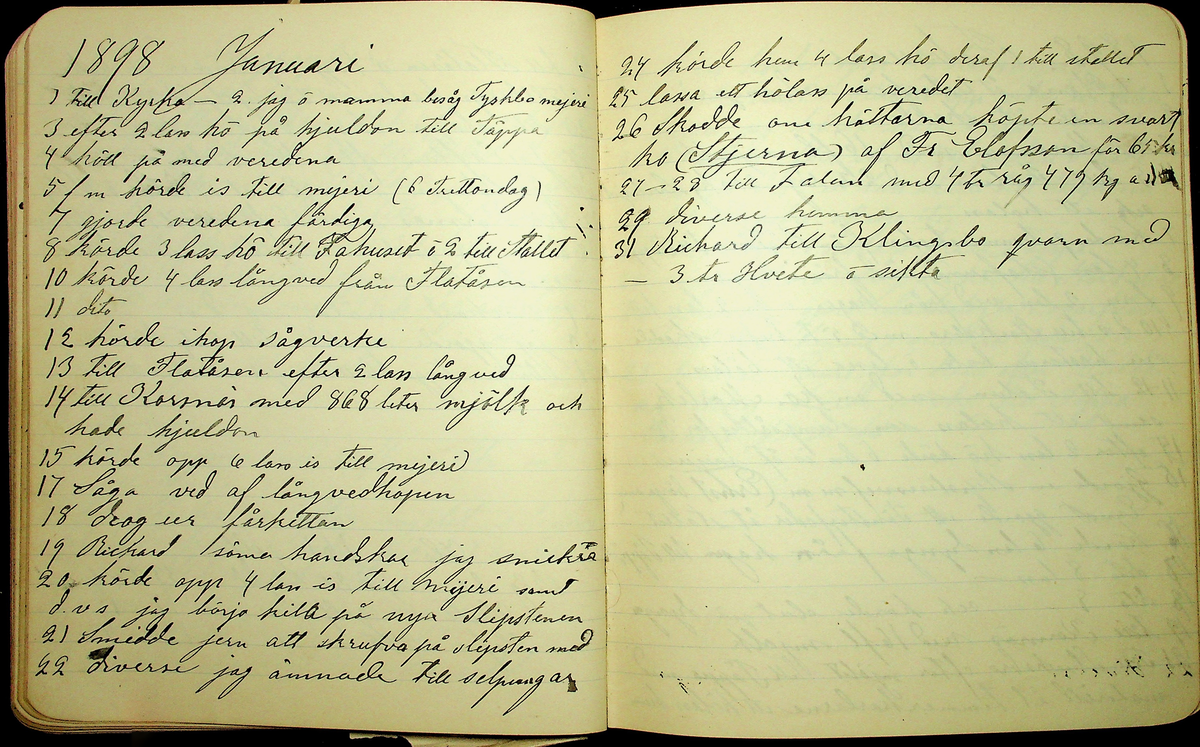 1898 Januari
1 till Kyrka — 2. jag ö mamma besåg Tyskbo mejeri
3 efter 2 lass hö på hjuldon till Täppa
4 höll på med veredena
5 f m körde is till mejeri (6 Trettondag)
7 gjorde veredena färdiga
8 körde 3 lass hö till Fähuset ö 2 till Stallet
10 körde 4 lass långved från Flatåsen
11 dito
12 körde ihop sågverke
13 till Flatåsen efter 2 lass långved
14 till Korsnäs med 868 liter mjölk och
hade hjuldon
15 körde opp 6 lass is till mejeri
17 Såga ved af långvedhopen
18 drog ur fårkettan
19 Richard söma handskar jag snickra
20 körde opp 4 lass is till mijeri samt
d.v.s jag börja hilla på nya Slipstenen
21 Smidde jern att skrufva på slipsten med
22 diverse jag ämnade till selpungar
24 körde hem 4 lass hö deraf 1 till stallet
25 lassa ett hölass på veredet
26 Skodde om hästarna köpte en svart
ko (Stjerna) af Fr Elofsson för 65 kr
27–28 till Falun med 4 tr råg 479 kg
29 diverse hemma
31 Richard till Klingsbo qvarn med
— 3 tr Hvete ö sikta